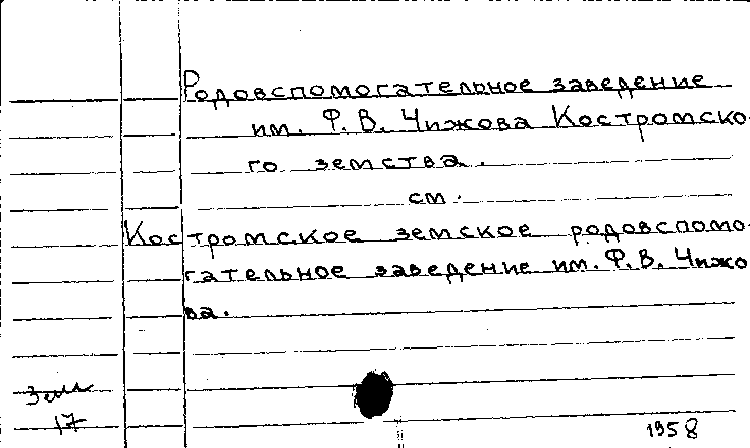 Родовспомогательное заведение
им. Ф. В. Чижова Костромско-
го земства.
см.
Костромское земское родовспомо-
гательное заведение им. Ф. В. Чижо-
ва.
Земл
17
1958